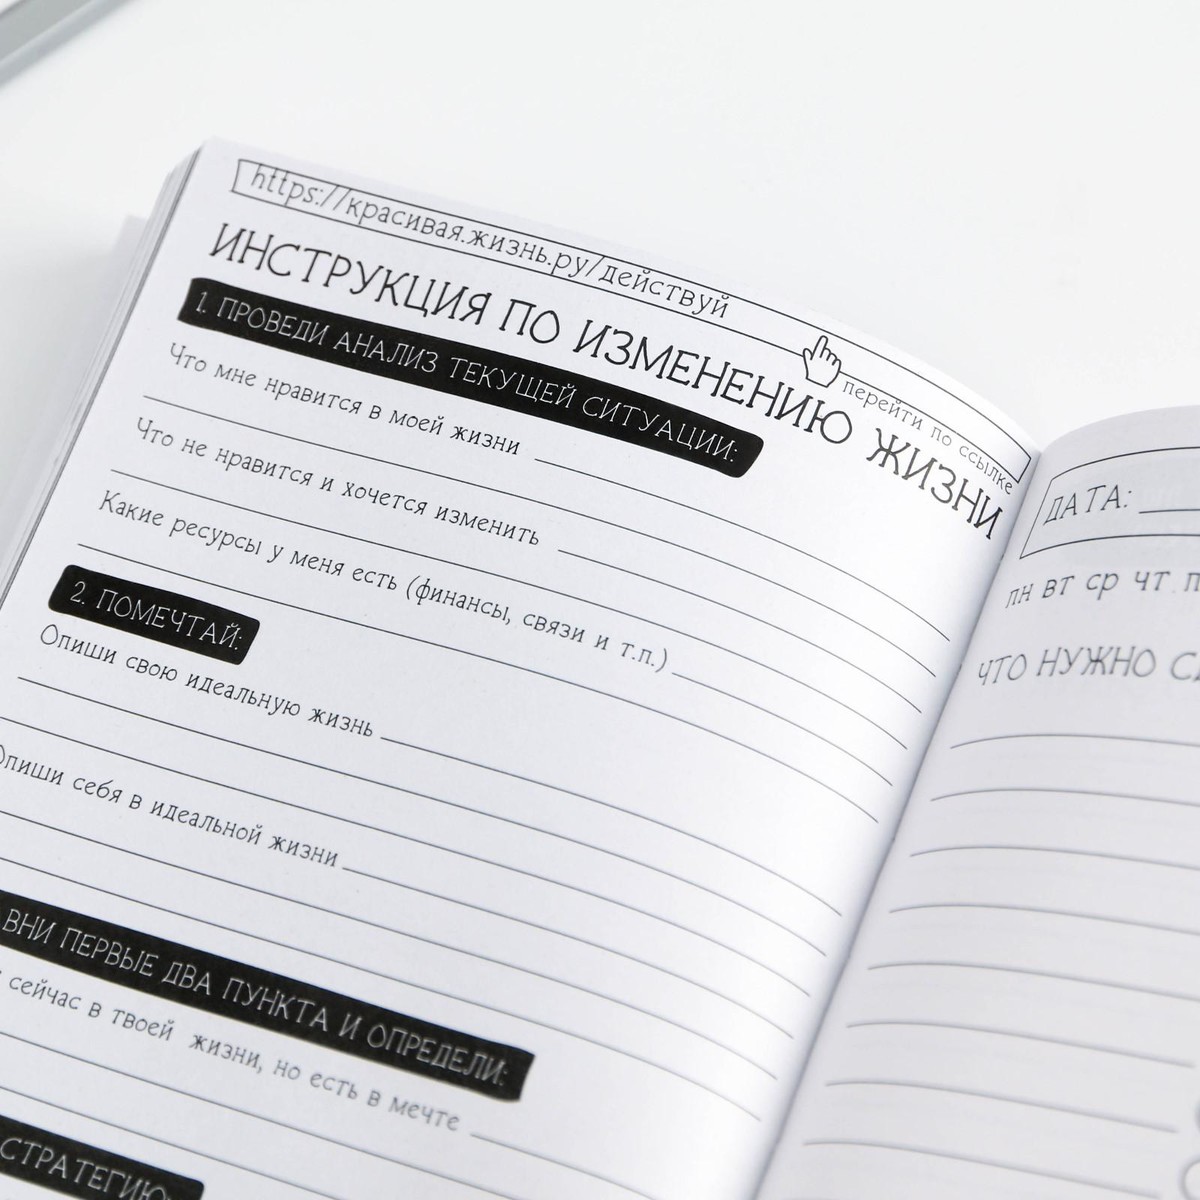 https://красивая.жизнь.ру/действуй
перейти по ссылке
ИНСТРУКЦИЯ ПО ИЗМЕНЕНИЮ ЖИЗНИ
1. ПРОВЕДИ АНАЛИЗ ТЕКУЩЕЙ СИТУАЦИИ:
Что мне нравится в моей жизни
Что не нравится и хочется изменить
Какие ресурсы у меня есть (финансы, связи и т.п.)
2. ПОМЕЧТАЙ:
Опиши свою идеальную жизнь
Опиши себя в идеальной жизни
ВНИ ПЕРВЫЕ ДВА ПУНКТА И ОПРЕДЕЛИ:
сейчас в твоей жизни, но есть в мечте
СТРАТЕГИЮ:
ДАТА:
ПН ВТ СР ЧТ
ЧТО НУЖНО